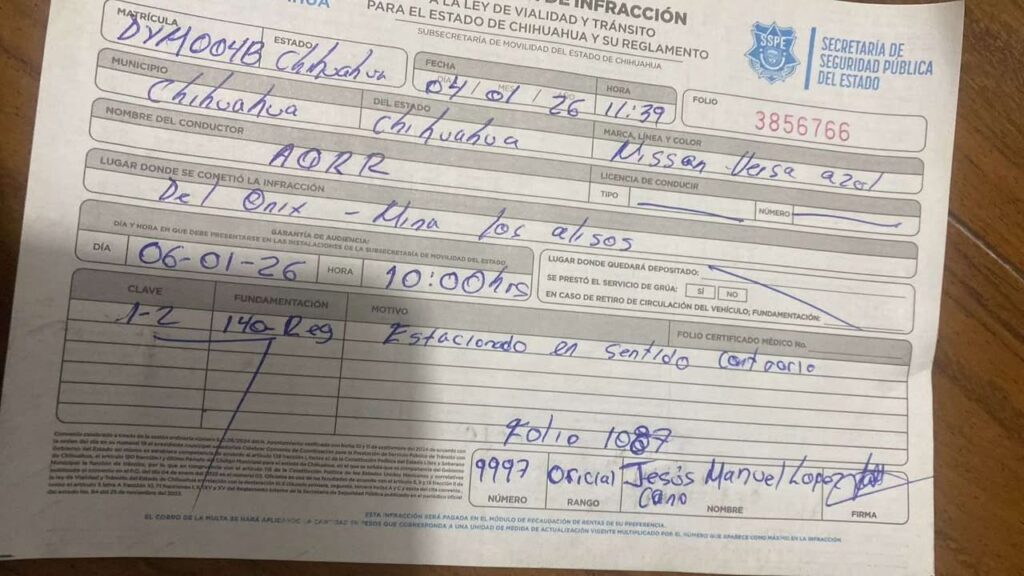 DE INFRACCIÓN
A LA LEY DE VIALIDAD Y TRÁNSITO
PARA EL ESTADO DE CHIHUAHUA Y SU REGLAMENTO
SUBSECRETARÍA DE MOVILIDAD DEL ESTADO DE CHIHUAHUA
SSPE
SECRETARÍA DE
SEGURIDAD PÚBLICA
DEL ESTADO
MATRÍCULA ESTADO
DYM004B Chihuahua
FECHA HORA
04/01/26 11:39
FOLIO
3856766
MUNICIPIO DEL ESTADO MARCA, LÍNEA Y COLOR
Chihuahua Chihuahua Nissan Versa azul
NOMBRE DEL CONDUCTOR LICENCIA DE CONDUCIR
AORR TIPO NÚMERO
LUGAR DONDE SE COMETIÓ LA INFRACCIÓN
Del Onix - Mina los alisos
GARANTÍA DE AUDIENCIA:
DÍA Y HORA EN QUE DEBE PRESENTARSE EN LAS INSTALACIONES DE LA SUBSECRETARÍA DE MOVILIDAD DEL ESTADO
DÍA 06-01-26 HORA 10:00hrs
LUGAR DONDE QUEDARÁ DEPOSITADO:
SE PRESTÓ EL SERVICIO DE GRÚA: SÍ NO
EN CASO DE RETIRO DE CIRCULACIÓN DEL VEHÍCULO; FUNDAMENTACIÓN:
CLAVE FUNDAMENTACIÓN MOTIVO FOLIO CERTIFICADO MÉDICO No.
1-2 140-Reg Estacionado en sentido contrario
Folio 1087
9997 Oficial Jesús Manuel Lopez
Cano
NÚMERO RANGO NOMBRE FIRMA
ESTA INFRACCIÓN SERÁ PAGADA EN EL MÓDULO DE RECAUDACIÓN DE RENTAS DE SU PREFERENCIA.
EL COBRO DE LA MULTA SE HARÁ APLICANDO LA CANTIDAD EN PESOS QUE CORRESPONDA A UNA UNIDAD DE MEDIDA DE ACTUALIZACIÓN VIGENTE MULTIPLICADO POR EL NÚMERO QUE APARECE COMO MÁXIMO EN LA INFRACCIÓN